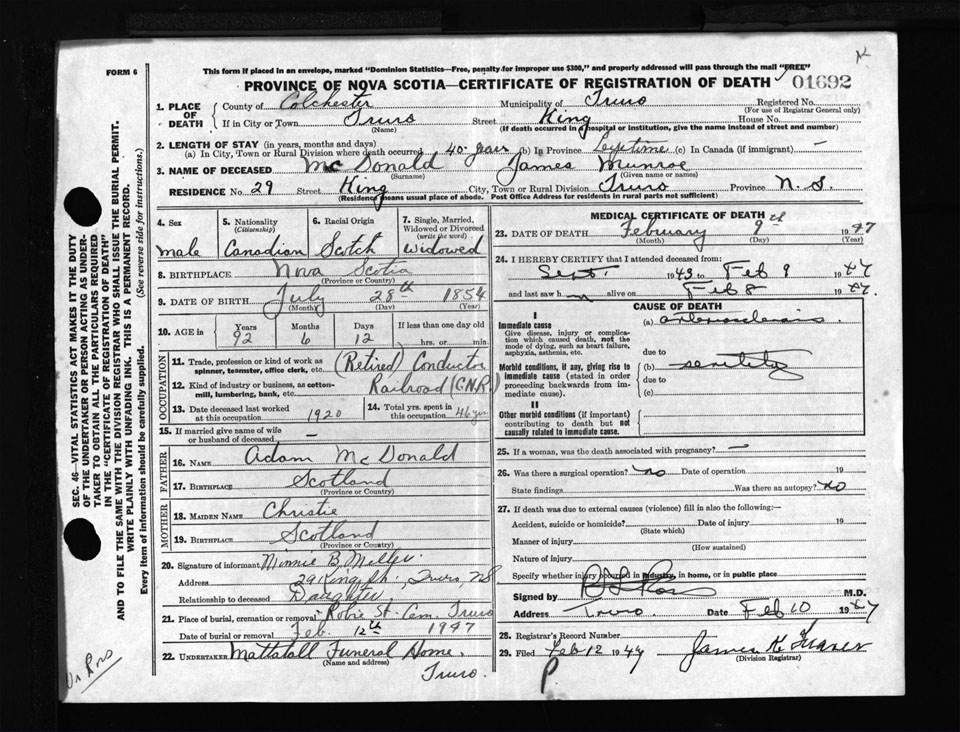 FORM 6
This form if placed in an envelope, marked "Dominion Statistics—Free, penalty for improper use $300," and properly addressed will pass through the mail "FREE"
PROVINCE OF NOVA SCOTIA—CERTIFICATE OF REGISTRATION OF DEATH 01692
1. PLACE OF DEATH County of Colchester Municipality of Truro Registered No.
(For use of Registrar General only)
If in City or Town Truro Street King House No.
(Name) (If death occurred in a hospital or institution, give the name instead of street and number)
2. LENGTH OF STAY (in years, months and days)
(a) In City, Town or Rural Division where death occurred 40 years (b) In Province Lifetime (c) In Canada (if immigrant) —
3. NAME OF DECEASED McDonald James Munroe
(Surname) (Given name or names)
RESIDENCE No. 29 Street King City, Town or Rural Division Truro Province N. S.
(Residence means usual place of abode. Post Office Address for residents in rural parts not sufficient)
4. Sex
male
5. Nationality
(Citizenship)
Canadian
6. Racial Origin
Scotch
7. Single, Married, Widowed or Divorced
(write the word)
Widowed
8. BIRTHPLACE Nova Scotia
(Province or Country)
9. DATE OF BIRTH July 28th 1854
(Month) (Day) (Year)
10. AGE in Years Months Days If less than one day old
92 6 12 hrs. or min.
OCCUPATION
11. Trade, profession or kind of work as spinner, teamster, office clerk, etc. (Retired) Conductor
12. Kind of industry or business, as cotton-mill, lumbering, bank, etc. Railroad (C.N.R.)
13. Date deceased last worked at this occupation 1920
14. Total yrs. spent in this occupation 46 yrs
15. If married give name of wife or husband of deceased —
FATHER
16. NAME Adam McDonald
17. BIRTHPLACE Scotland
(Province or Country)
MOTHER
18. MAIDEN NAME Christie
19. BIRTHPLACE Scotland
(Province or Country)
20. Signature of informant Minnie B. Miller
Address 29 King St., Truro, NS
Relationship to deceased Daughter
21. Place of burial, cremation or removal Robie St. Cem. Truro
Date of burial or removal Feb. 12th 1947
22. UNDERTAKER Mattatall Funeral Home.
(Name and address)
Truro.
MEDICAL CERTIFICATE OF DEATH
23. DATE OF DEATH February 9th 1947
(Month) (Day) (Year)
24. I HEREBY CERTIFY that I attended deceased from:
Sept. 1943 to Feb 9 1947
and last saw h m alive on Feb 8 1947.
CAUSE OF DEATH
I
Immediate cause
Give disease, injury or complication which caused death, not the mode of dying, such as heart failure, asphyxia, asthenia, etc.
(a) arteriosclerosis.
due to
Morbid conditions, if any, giving rise to immediate cause (stated in order proceeding backwards from immediate cause).
(b) senility
due to
(c)
II
Other morbid conditions (if important) contributing to death but not causally related to immediate cause.
25. If a woman, was the death associated with pregnancy? —
26. Was there a surgical operation? no Date of operation 19
State findings Was there an autopsy? no
27. If death was due to external causes (violence) fill in also the following:—
Accident, suicide or homicide? Date of injury 19
(State which)
Manner of injury
(How sustained)
Nature of injury
Specify whether injury occurred in industry, in home, or in public place
Signed by M.D.
Address Truro. Date Feb 10 1947
28. Registrar's Record Number
29. Filed Feb 12 1947 James K Fraser
(Division Registrar)
SEC. 46—VITAL STATISTICS ACT MAKES IT THE DUTY OF THE UNDERTAKER OR PERSON ACTING AS UNDERTAKER TO OBTAIN ALL THE PARTICULARS REQUIRED IN THE "CERTIFICATE OF REGISTRATION OF DEATH"
AND TO FILE THE SAME WITH THE DIVISION REGISTRAR WHO SHALL ISSUE THE BURIAL PERMIT.
WRITE PLAINLY WITH UNFADING INK. THIS IS A PERMANENT RECORD.
Every item of information should be carefully supplied. (See reverse side for instructions.)